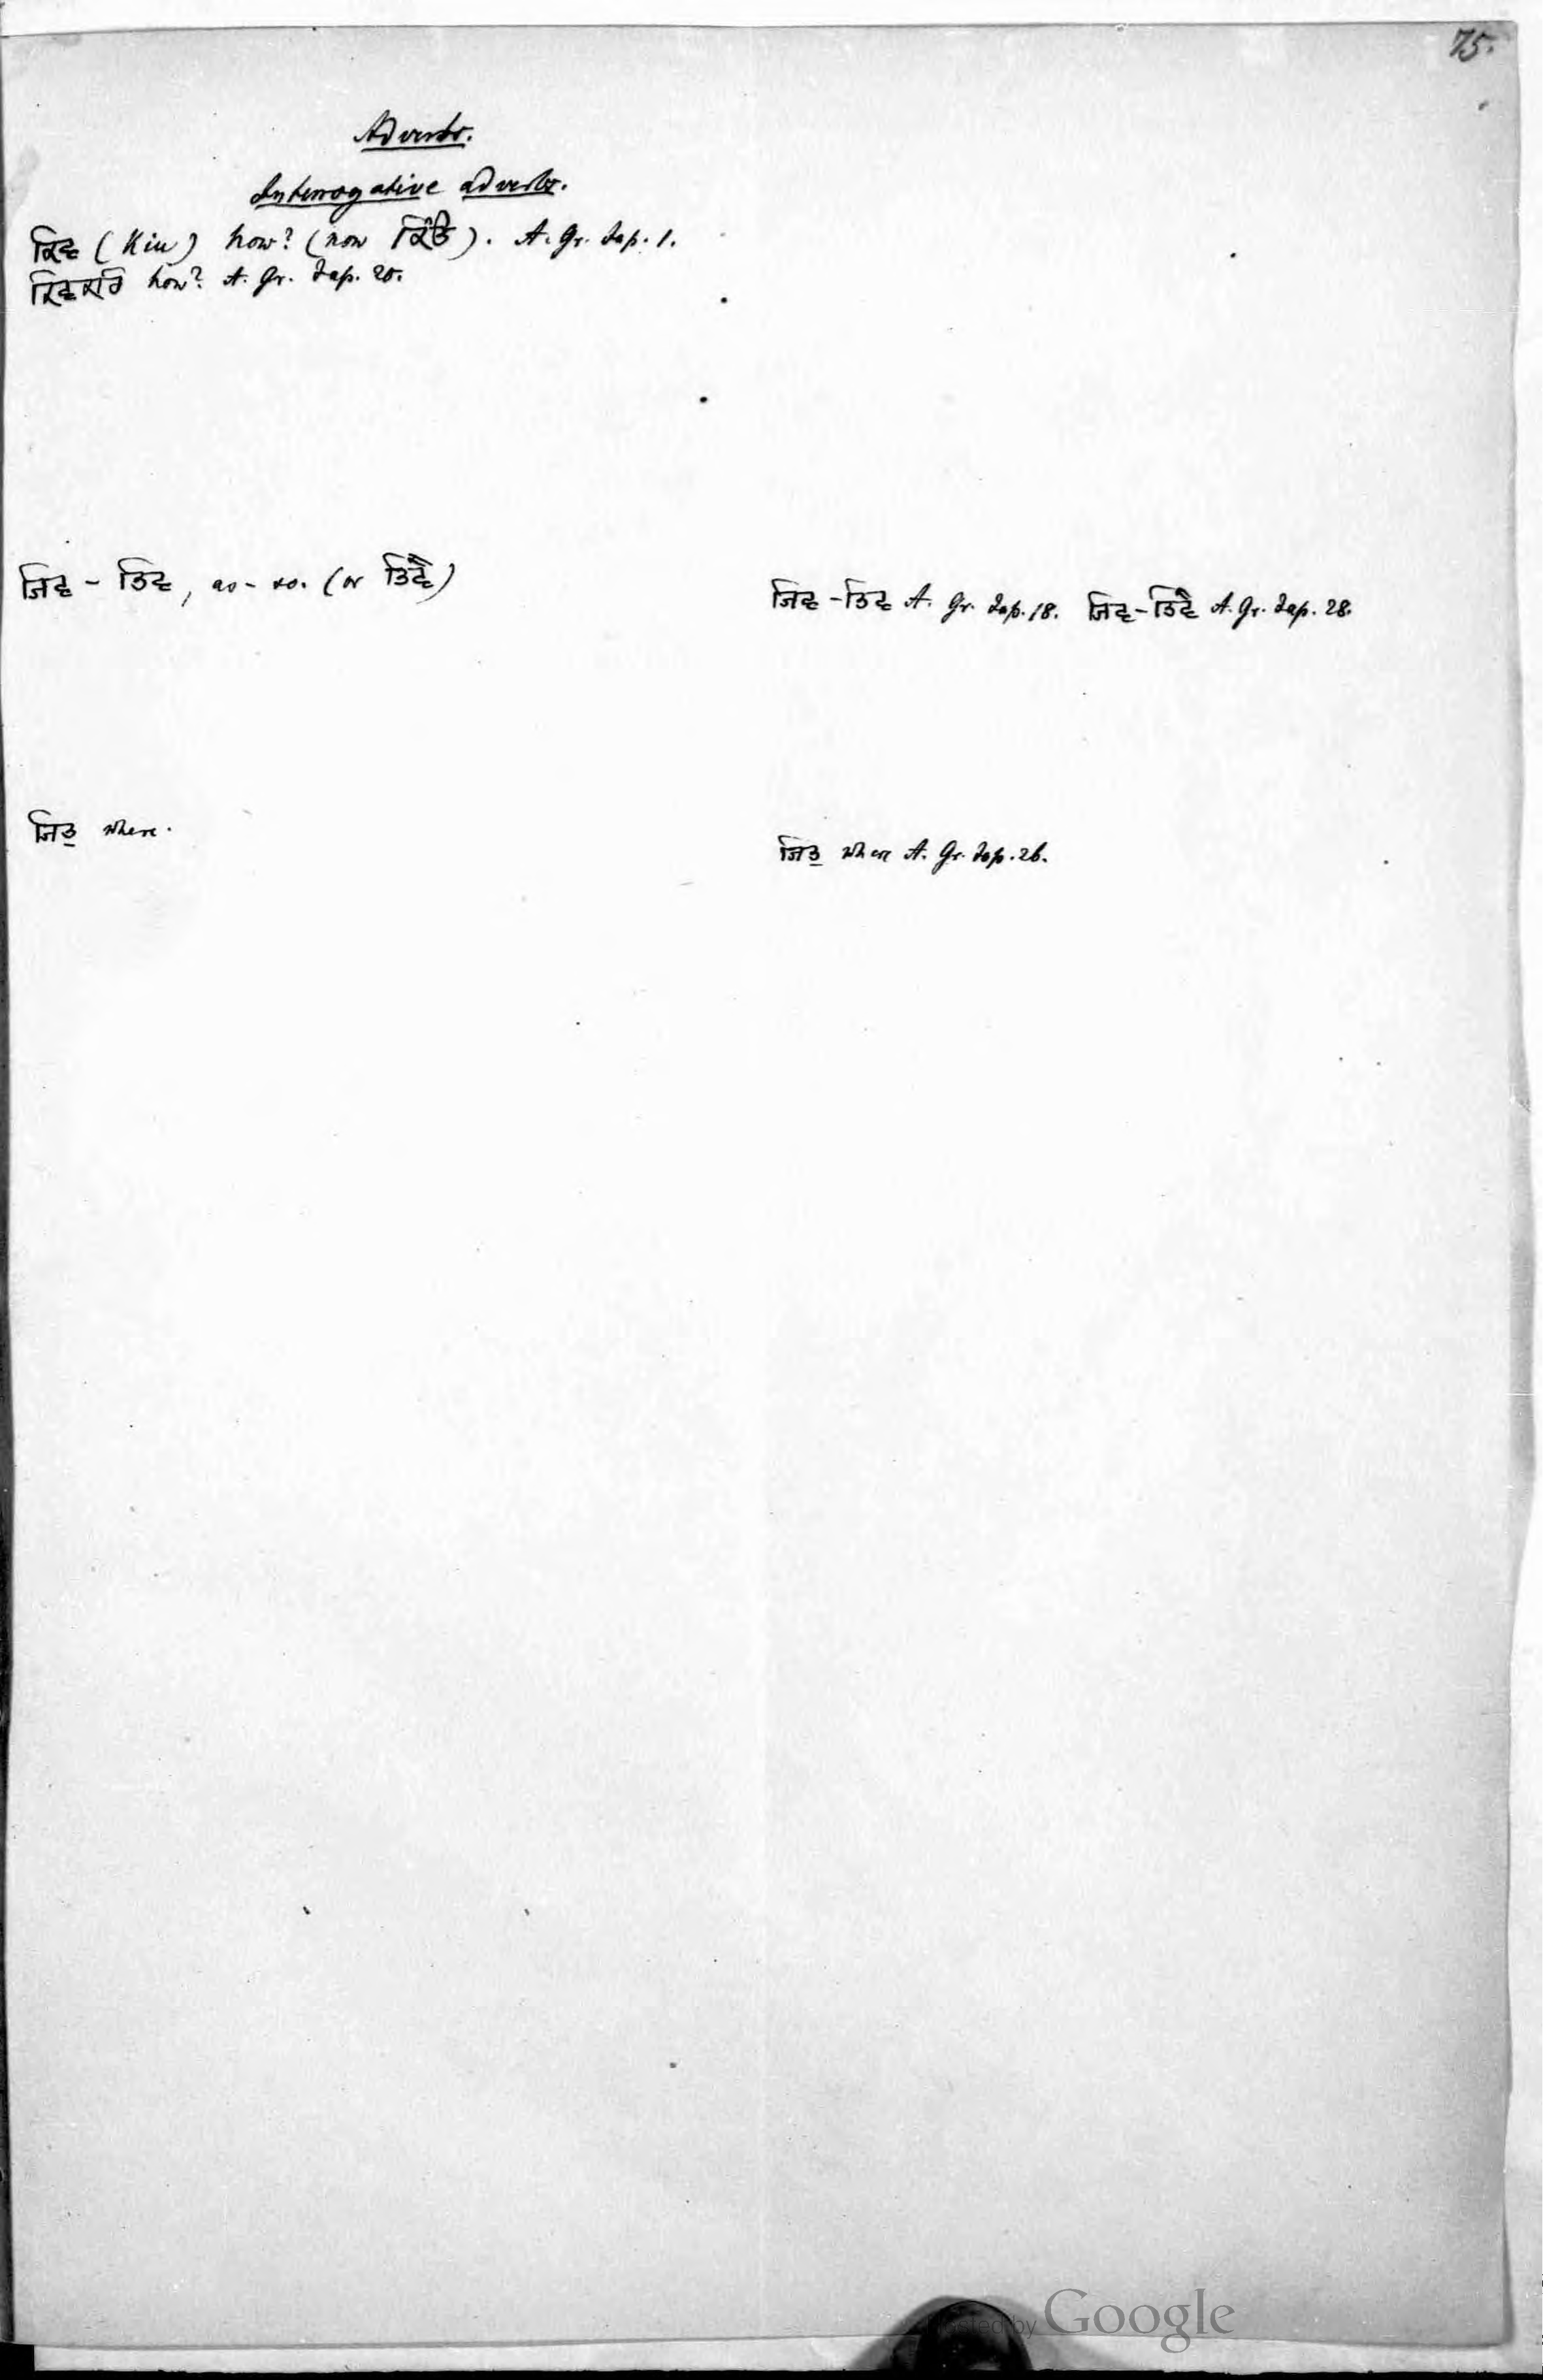 75.
Adverbs.
Interrogative adverbs.
ਕਿਵ (Kiu) how? (now ਕਿੰਉ). A. Gr. Jap. 1.
ਕਿਵਕਰਿ how? A. Gr. Jap. 20.
ਜਿਵ - ਤਿਵ, as - so. (or ਤਿਵੈ)
ਜਿਵ - ਤਿਵ A. Gr. Jap. 18. ਜਿਵ - ਤਿਵੈ A. Gr. Jap. 28.
ਜਿਤੁ where.
ਜਿਤੁ where A. Gr. Jap. 26.
Hosted by Google